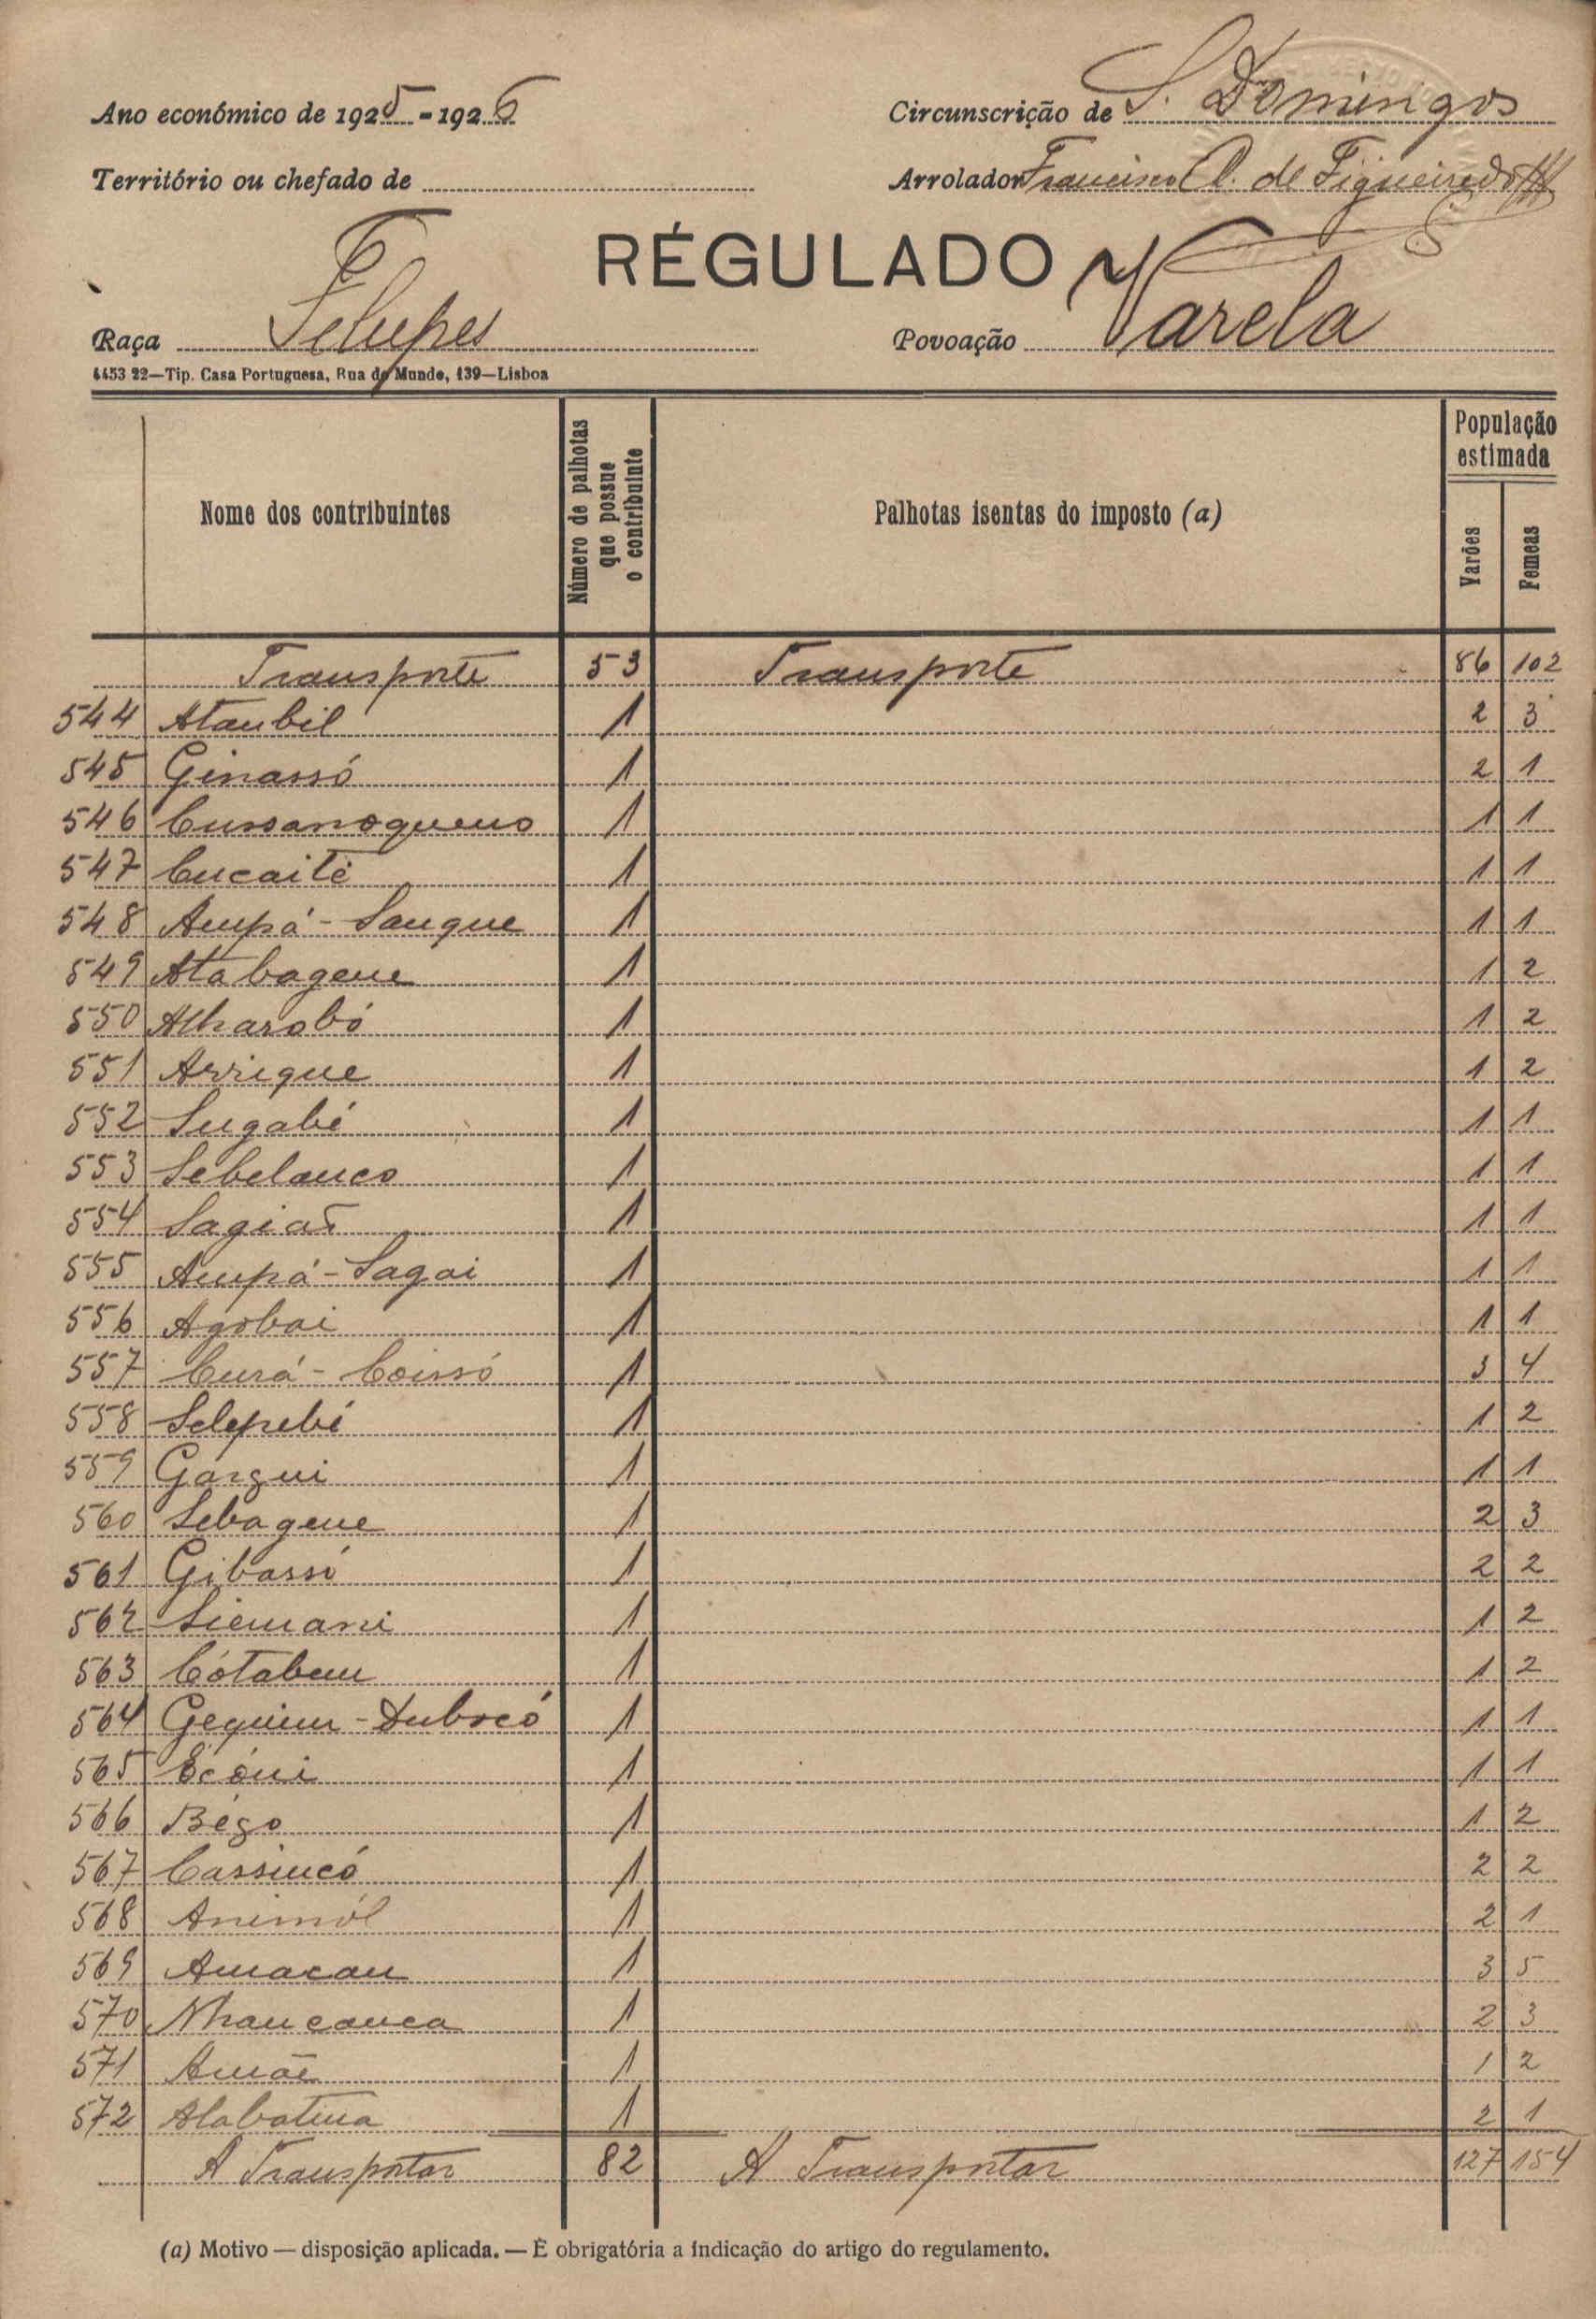 Ano económico de 1925-1926
Circunscrição de S. Domingos
Território ou chefado de
Arrolador Francisco A. de Figueiredo
RÉGULADO
Raça Felupes
Povoação Varela
4453 22—Tip. Casa Portuguesa, Rua do Mundo, 139—Lisboa
Nome dos contribuintes
Número de palhotas que possue o contribuinte
Palhotas isentas do imposto (a)
População estimada
Varões
Femeas
Transporte 53 Transporte 86 102
544 Ataubil 1 2 3
545 Ginassó 1 2 1
546 Cussanoqueno 1 1 1
547 Cucaité 1 1 1
548 Ampá-Sanque 1 1 1
549 Atabagene 1 1 2
550 Alharabó 1 1 2
551 Arrique 1 1 2
552 Sugabé 1 1 1
553 Sebelanco 1 1 1
554 Sagiat 1 1 1
555 Ampá-Sagai 1 1 1
556 Agobai 1 1 1
557 Curá-Coissó 1 3 4
558 Selepebé 1 1 2
559 Gargui 1 1 1
560 Sebagene 1 2 3
561 Gibassó 1 2 2
562 Siemani 1 1 2
563 Cótabem 1 1 2
564 Gequim-Dubocó 1 1 1
565 Ecóni 1 1 1
566 Bégo 1 1 2
567 Cassincó 1 2 2
568 Animól 1 2 1
569 Amacau 1 3 5
570 Nhancanca 1 2 3
571 Amãe 1 1 2
572 Alabatina 1 2 1
A Transportar 82 A Transportar 127 154
(a) Motivo — disposição aplicada. — É obrigatória a indicação do artigo do regulamento.